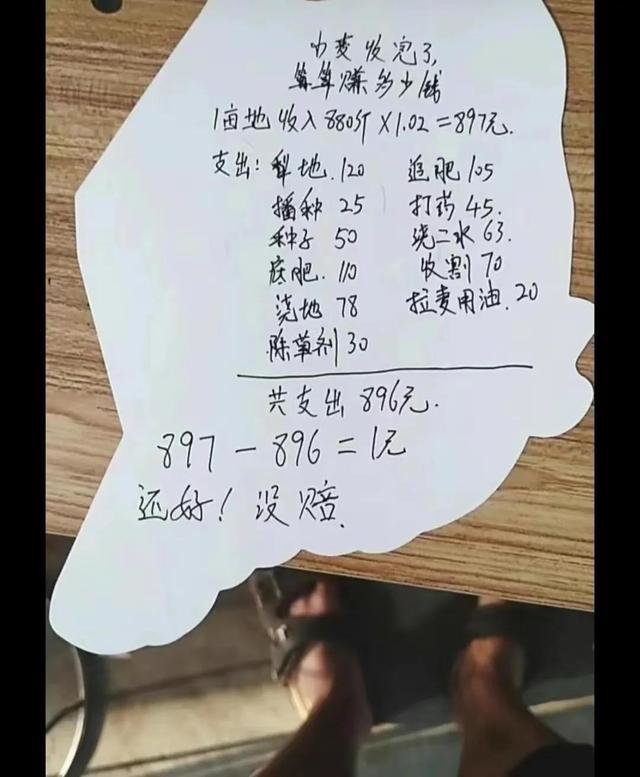 小麦收完了,
算算赚多少钱
1亩地收入880斤×1.02=897元.
支出: 犁地.120 追肥105
播种 25 打药45.
种子 50 浇二水63.
底肥.110 收割70
浇地 78 拉麦用油.20
除草剂30
共支出896元.
897-896=1元
还好!没赔.